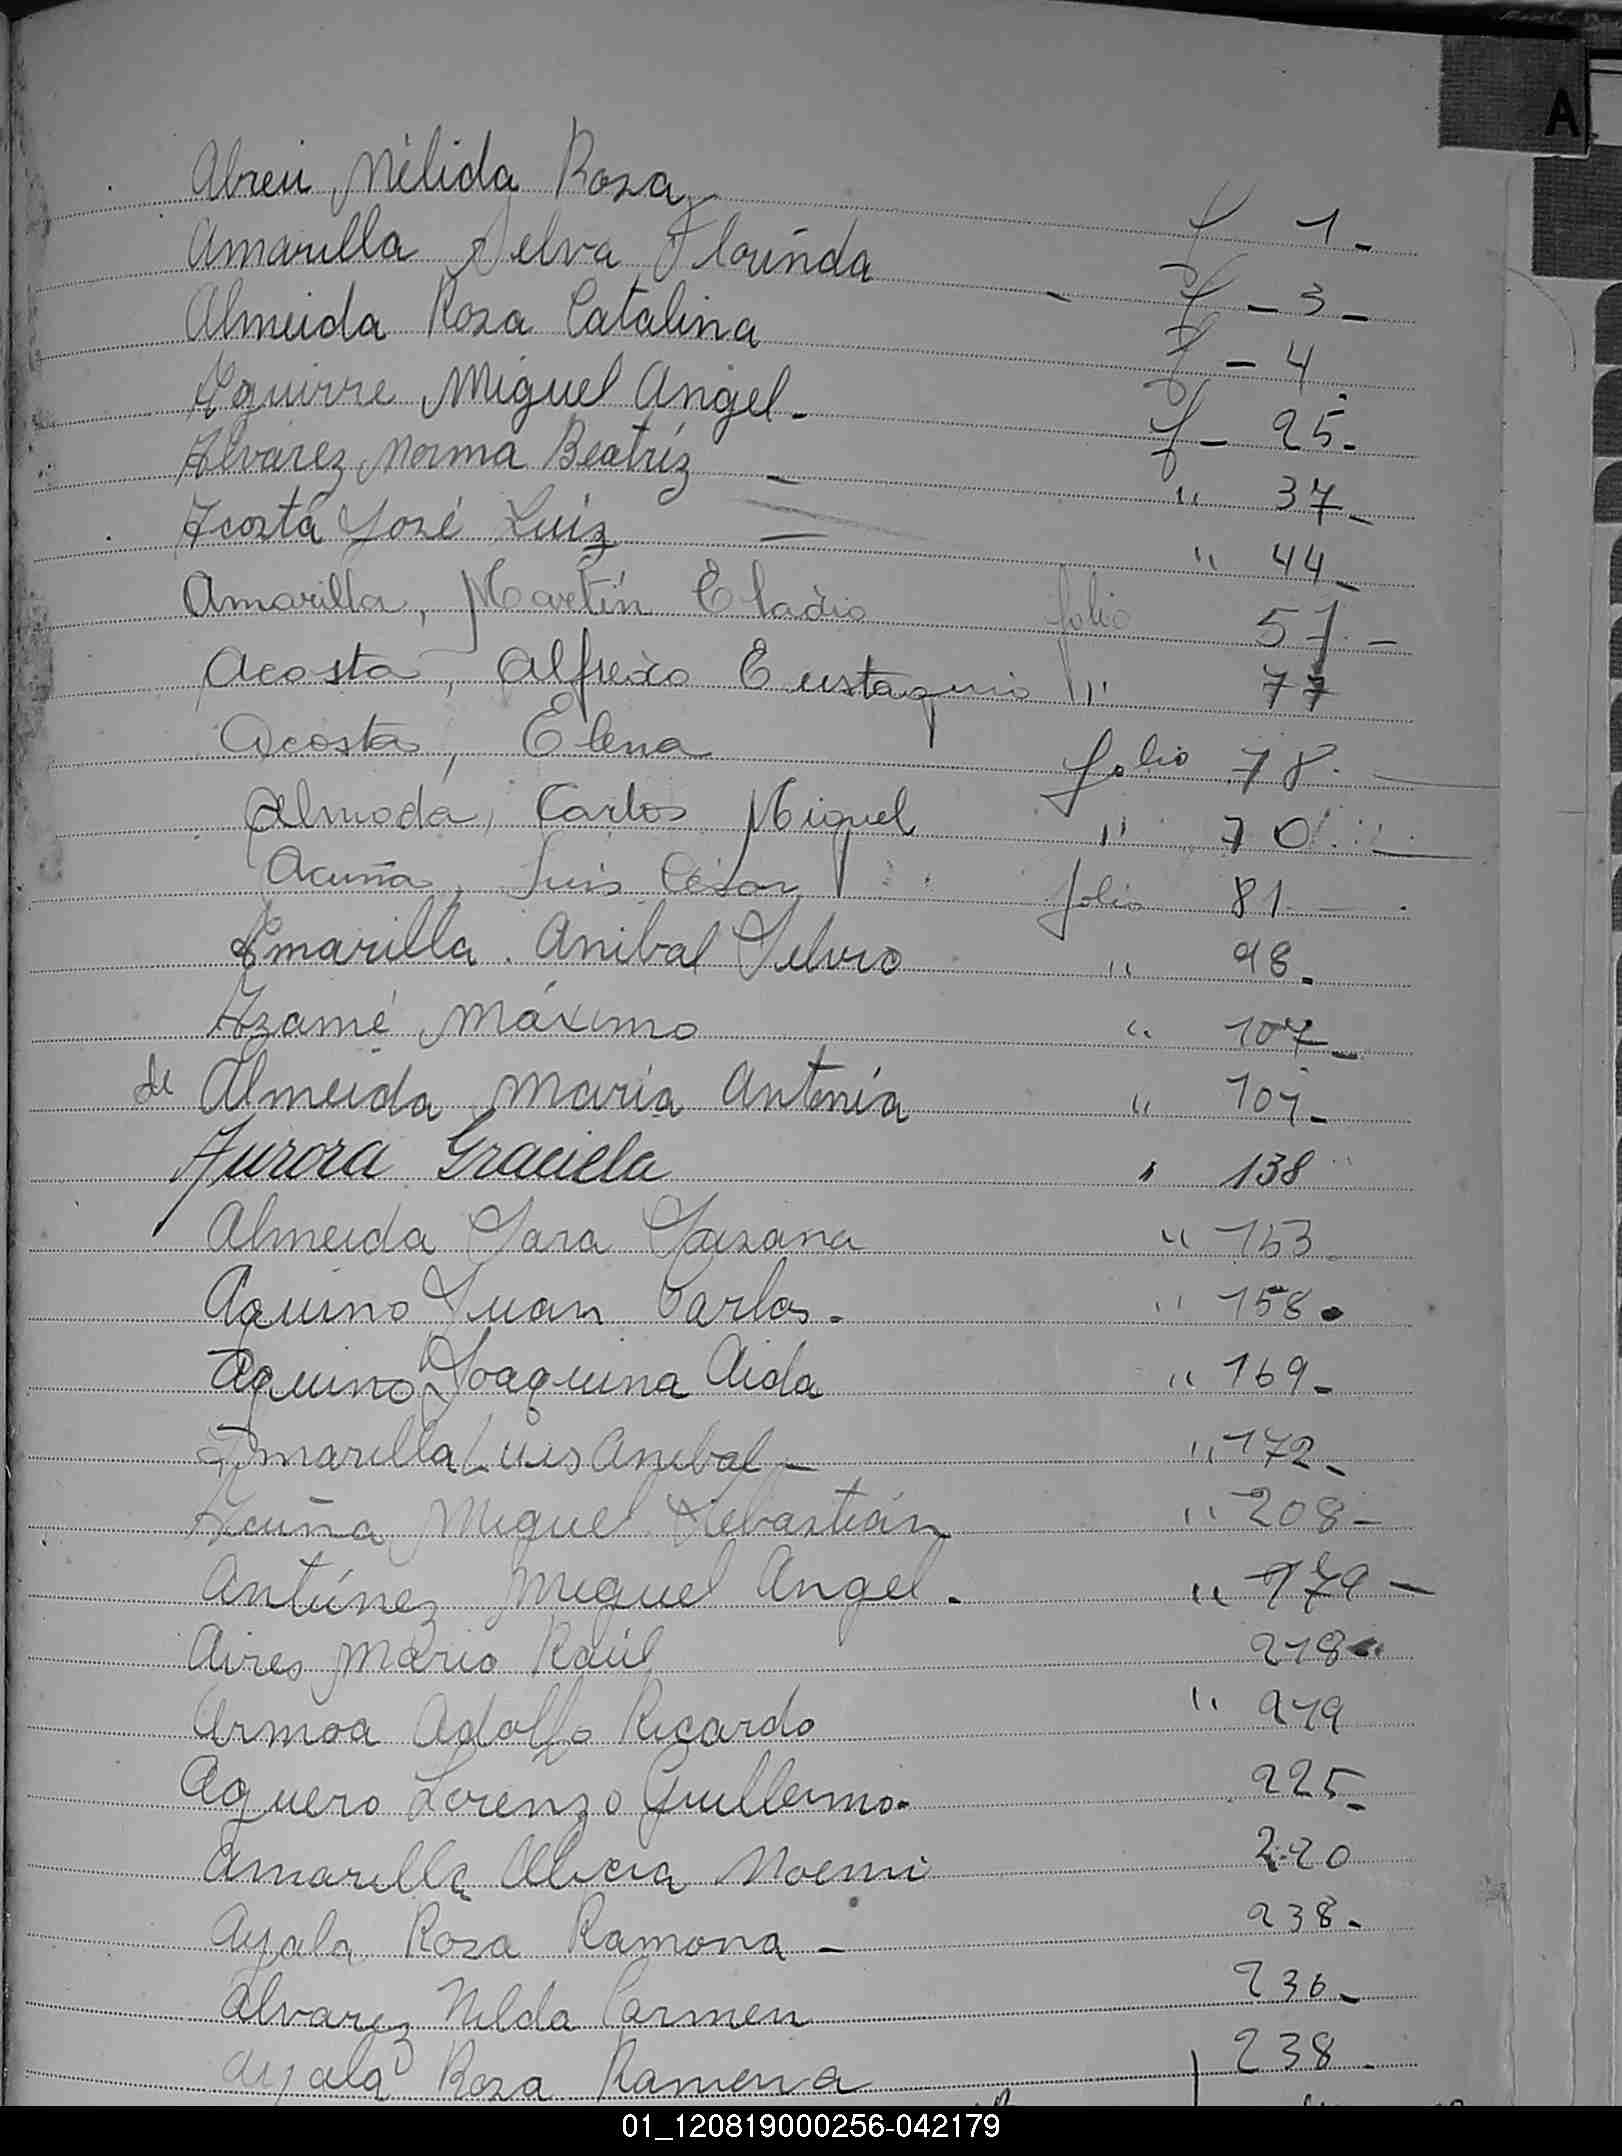 A
Abreu Nélida Rosa f 1-
Amarilla Selva Florinda - f - 3 -
Almeida Rosa Catalina f - 4
Aguirre Miguel Angel - f - 25 -
Alvarez Norma Beatríz - " 37 -
Acosta José Luíz = " 44 -
Amarilla, Martín Eladio folio 57 -
Acosta, Alfredo Eustaquio " 77
Acosta, Elena folio 78. -
Almada, Carlos Miguel " 70
Acuña, Luis César folio 81 -
Amarilla Anibal Silvio " 98 -
Azamé Máximo " 107 -
de Almeida María Antonia "
Aurora Graciela " 138
Almeida Sara " 153
Aquino Juan Carlos - " 158 -
Aquino Joaquina Aida " 169 -
Amarilla Luis Anibal - " 172 -
Acuña Miguel Sebastián " 208 -
Antúnez Miguel Angel - " 179 -
Aires Mario Raúl 218
Armoa Adolfo Ricardo " 219
Aguero Lorenzo Guillermo - 225 -
Amarilla Alicia Noemi 220
Ayala Rosa Ramona - 238 -
Alvarez Nilda Carmen 236 -
Ayala Rosa Ramona 238 -
01_120819000256-042179